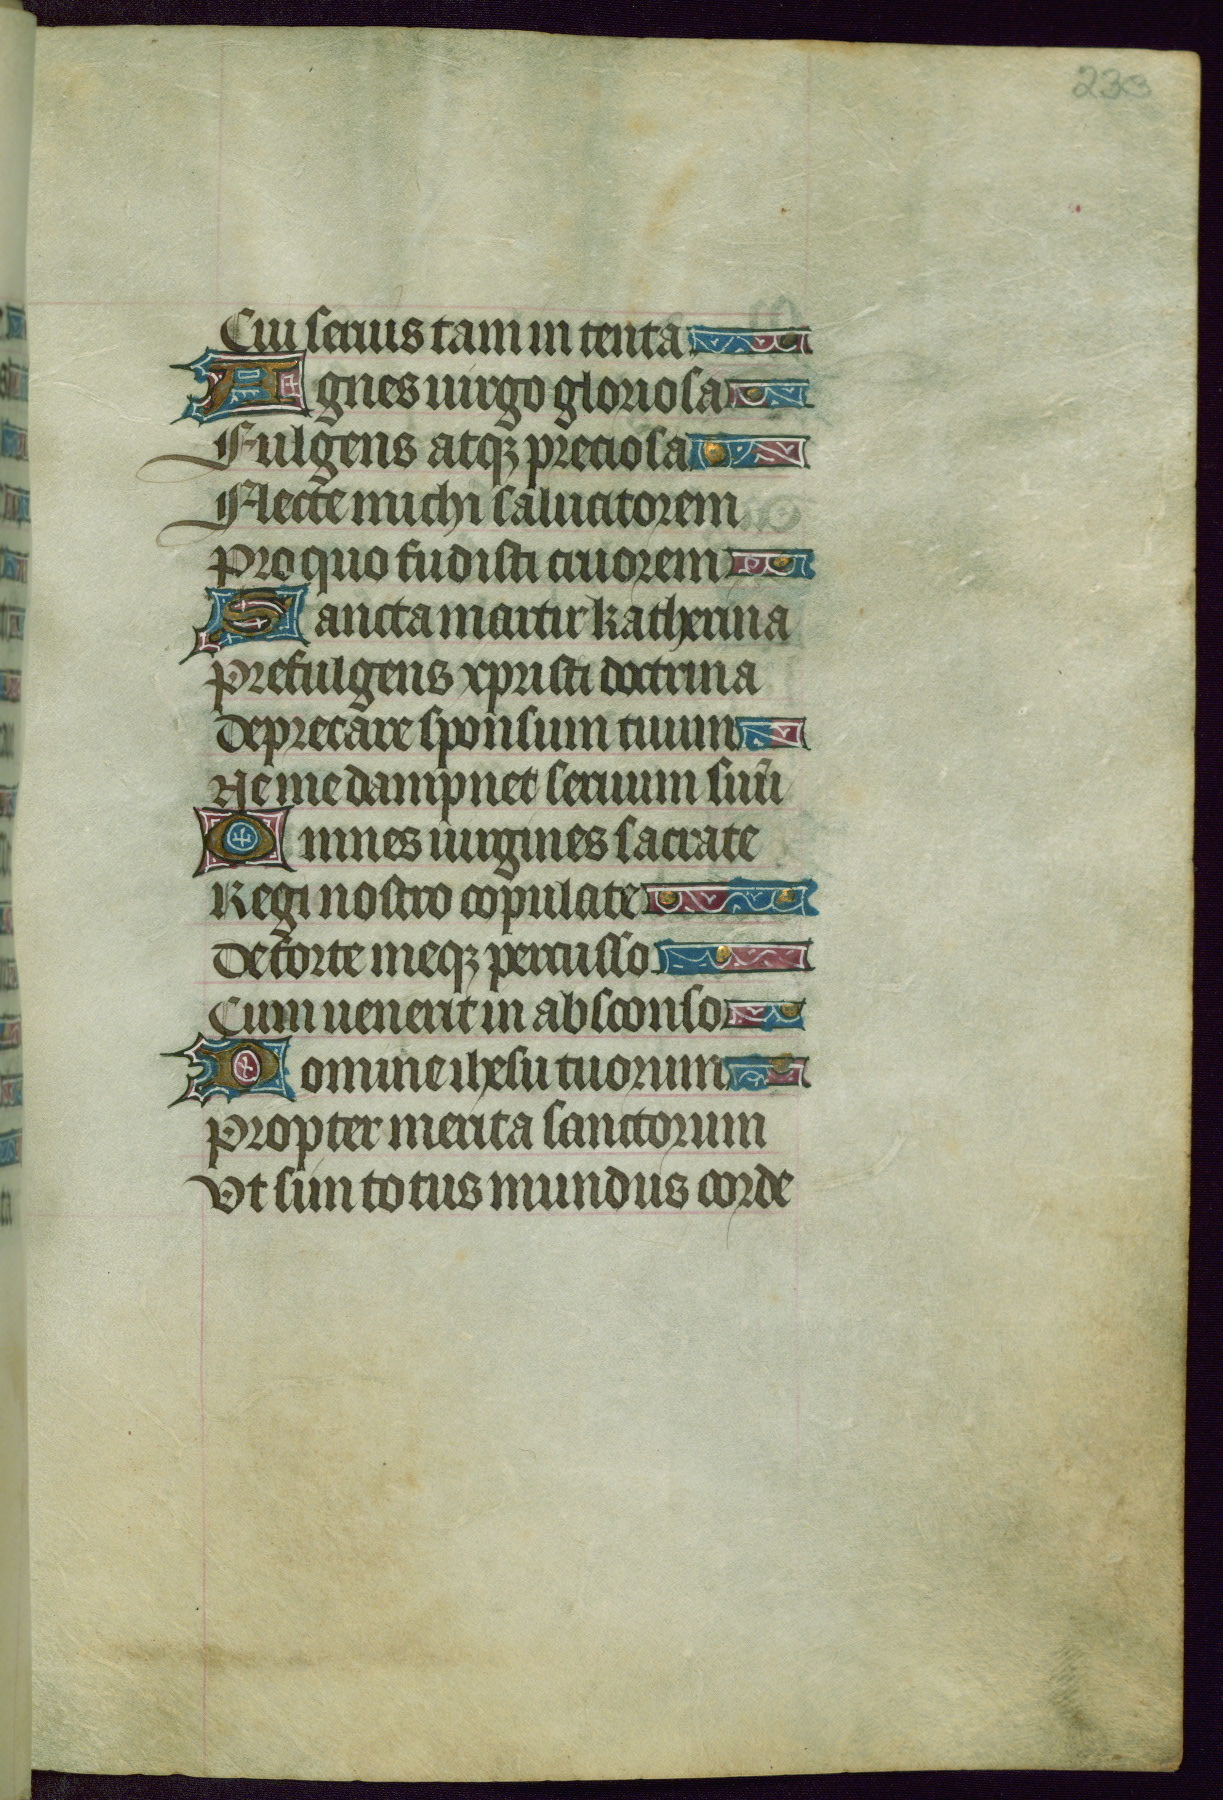 233
Cui serius tam in tenta
Agnes uirgo gloriosa
Fulgens atqꝫ preciosa
Flecte michi saluatorem
Pro quo fudisti cruorem
Sancta martir katherina
Prefulgens xpristi doctrina
Deprecare sponsum tuum
Ne me dampnet seruum suū
Omnes uirgines sacrate
Regi nostro copulate
De forte meqꝫ percusso
Cum uenerit in absconso
Domine ihesu tuorum
Propter merita sanctorum
Vt sim totus mundus corde